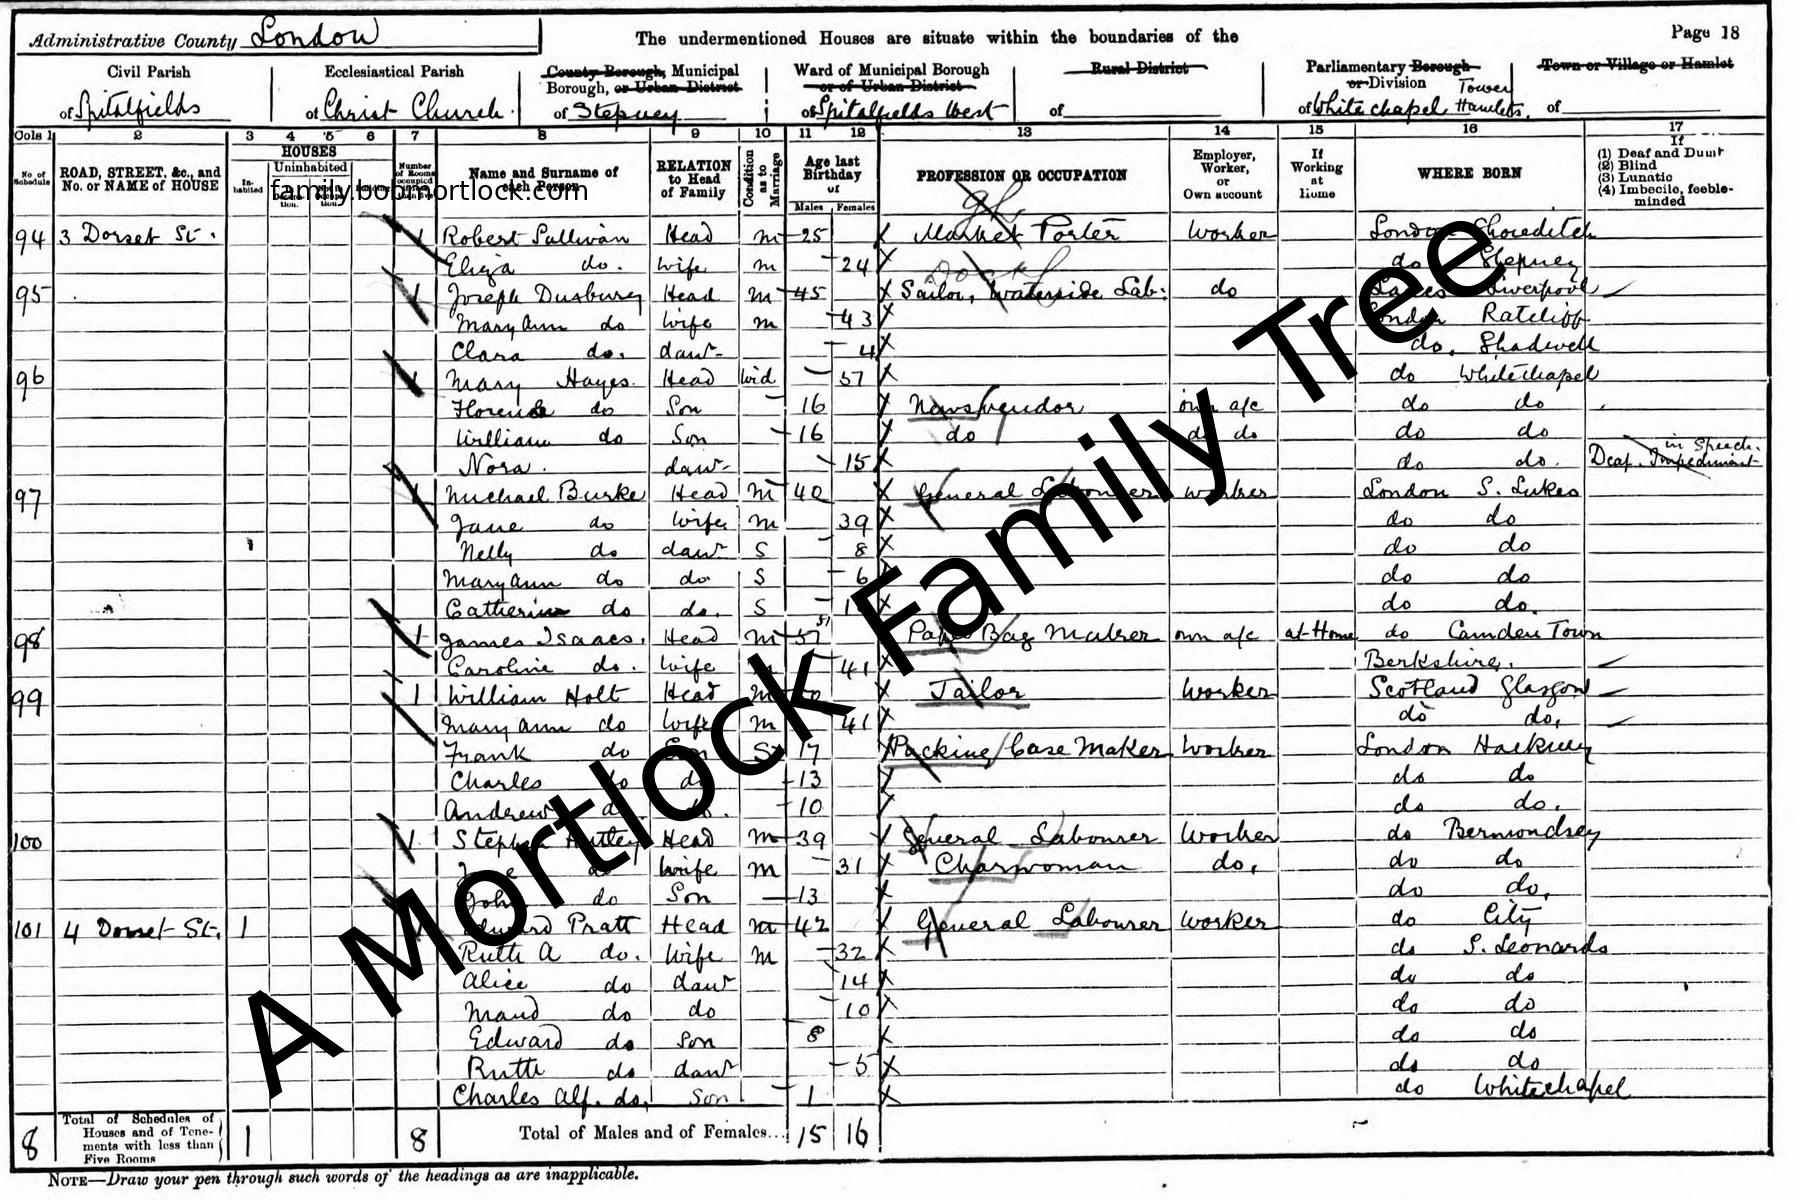 Administrative County London
The undermentioned Houses are situate within the boundaries of the
Page 18
Civil Parish of Spitalfields
Ecclesiastical Parish of Christ Church.
County Borough, Municipal Borough, or Urban District of Stepney
Ward of Municipal Borough or of Urban District of Spitalfields West
Rural District of
Parliamentary Borough or Division of Whitechapel Tower Hamlets,
Town or Village or Hamlet of
Cols 1 2 3 4 5 6 7 8 9 10 11 12 13 14 15 16 17
No. of Schedule
ROAD, STREET, &c., and No. or NAME of HOUSE
HOUSES
Inhabited
Uninhabited
family.bobmortlock.com
Name and Surname of each Person
RELATION to Head of Family
Condition as to Marriage
Age last Birthday of
Males Females
PROFESSION OR OCCUPATION
Employer, Worker, or Own account
If Working at Home
WHERE BORN
If
(1) Deaf and Dumb
(2) Blind
(3) Lunatic
(4) Imbecile, feeble-minded
94 3 Dorset St. 1 Robert Sullivan Head m 25 Market Porter Worker London Shoreditch
Eliza do. Wife m 24 do Stepney
95 1 Joseph Dusbury Head m 45 Sailor, Waterside Lab: do Liverpool
Mary Ann do Wife m 43 London Ratcliff
Clara do. daur 4 do. Shadwell
96 1 Mary Hayes. Head Wid 57 do Whitechapel
Florence do Son 16 Newsvendor own a/c do do
William do Son 16 do do do do do
Nora. daur 15 do do. Deaf. Impediment in Speech.
97 1 Michael Burke Head m 40 General Labourer worker London S. Lukes
Jane do Wife m 39 do do
Nelly do daur S 8 do do
Mary Ann do do S 6 do do
Catherine do do. S 1 do do.
98 1 James Isaacs. Head m 57 51 Paper Bag Maker own a/c at Home do Camden Town
Caroline do. Wife m 41 Berkshire.
99 1 William Holt Head m Tailor Worker Scotland Glasgow
Mary Ann do Wife m 41 do do.
Frank do Son S 17 Packing Case Maker Worker London Hackney
Charles do do 13 do do
Andrew do do. 10 do do.
100 1 Stephen Head m 39 General Labourer Worker do Bermondsey
do Wife m 31 Charwoman do. do do
John do Son 13 do do.
101 4 Dorset St. 1 Edward Pratt Head m 42 General Labourer Worker do City
Ruth A do. Wife m 32 do S. Leonards
Alice do daur 14 do do
Maud do do 10 do do
Edward do Son 8 do do
Ruth do daur 5 do do
Charles Alf. do. Son 1 do Whitechapel
8 Total of Schedules of Houses and of Tenements with less than Five Rooms 1 8 Total of Males and of Females... 15 16
NOTE—Draw your pen through such words of the headings as are inapplicable.
A Mortlock Family Tree